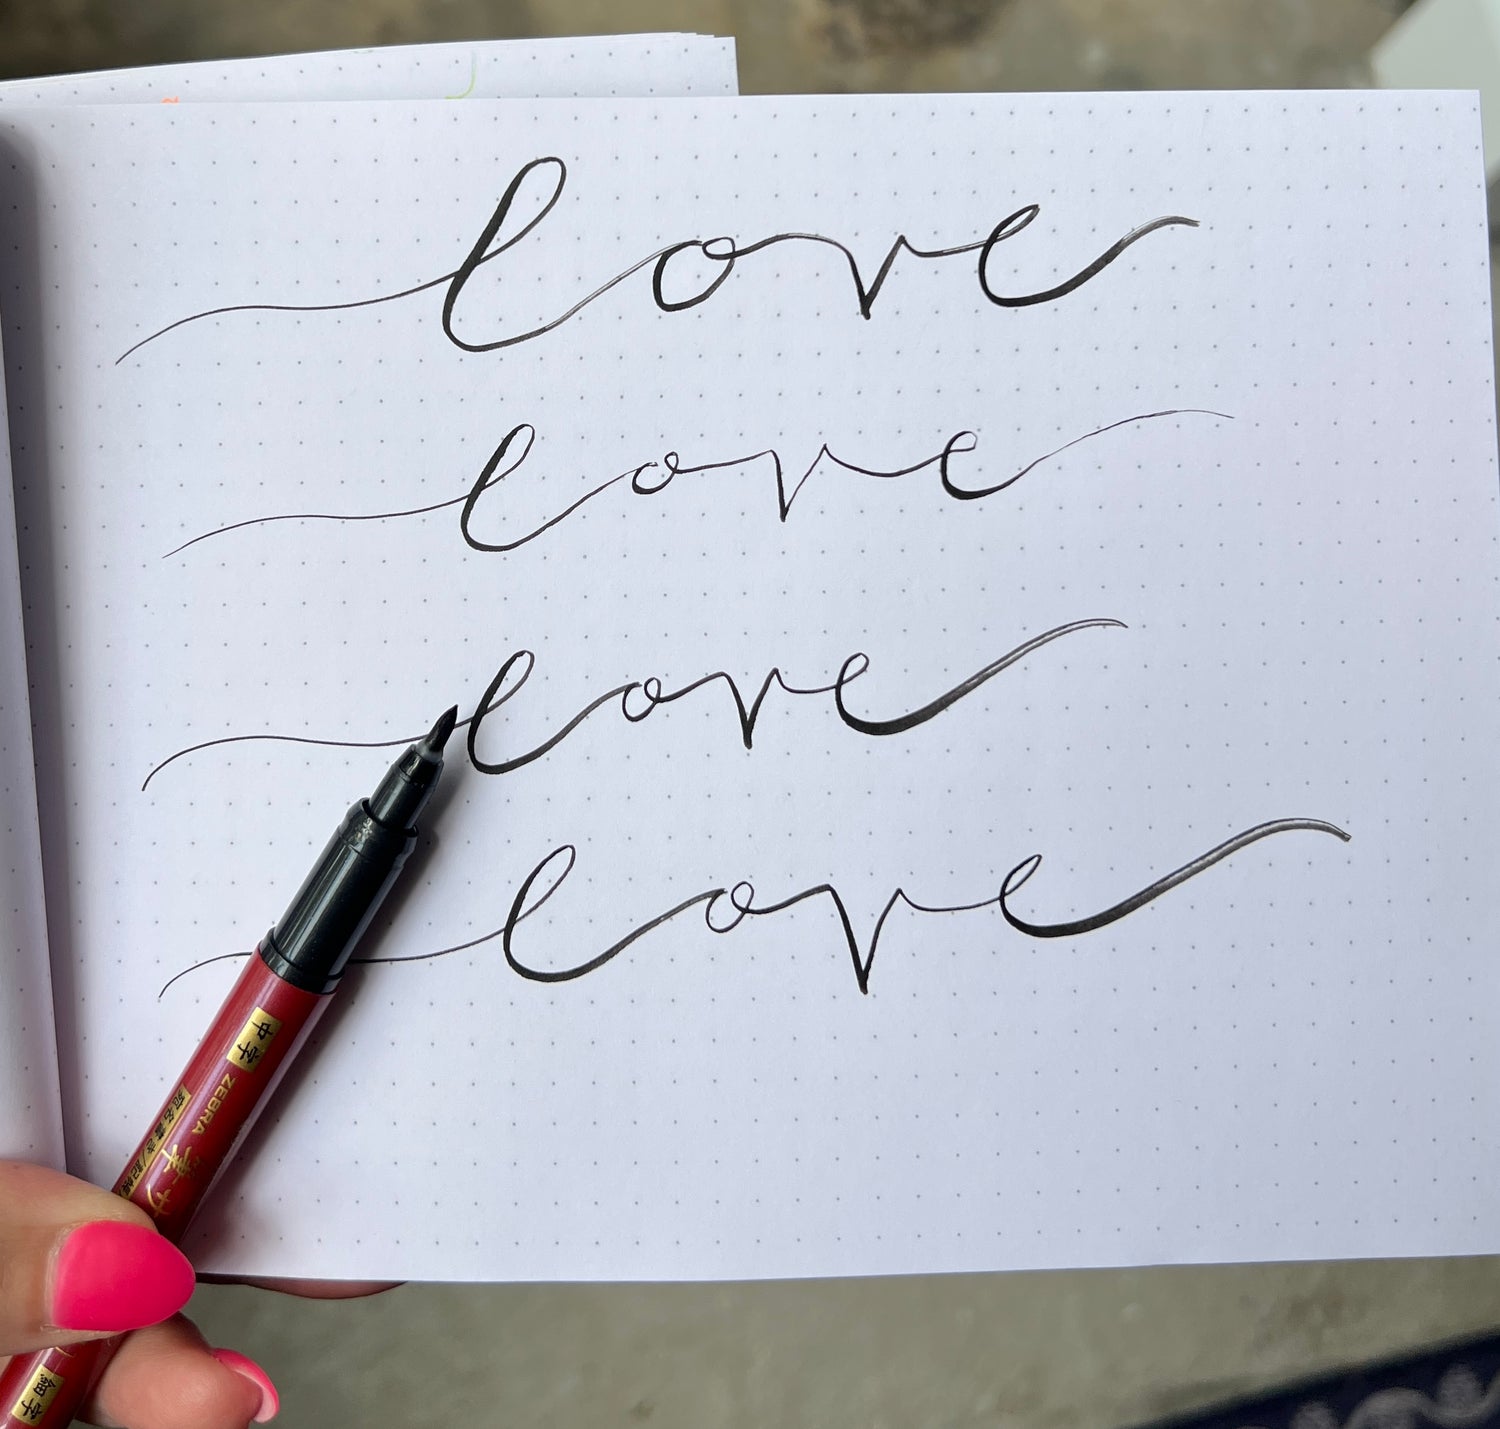 love
love
love
love
中字
ZEBRA 筆サ
細字